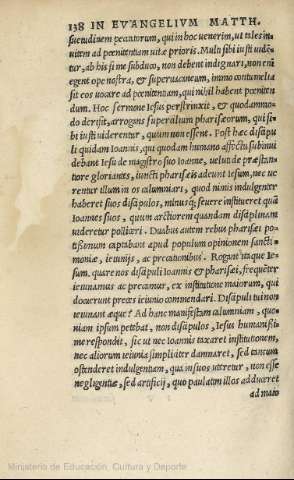 138 IN EVANGELIVM MATTH.
suetudinem peccatorum, qui in hoc venerim, ut tales in-
uitem ad pœnitentiam uitæ prioris. Multi sibi iusti uidē-
tur, ab his si me subduco, non debent indignari, non enī
egent ope nostra, & superuacaneum, immo contumelia
sit eos uocare ad pœnitentiam, qui nihil habent pœniten
dum. Hoc sermone Iesus perstrinxit, & quodammo-
do derisit, arrogans supercilium pharisæorum, qui si-
bi iusti uiderentur, quum non essent. Post hæc discipu
li quidam Ioannis, qui quodam humano affectu subinui
debant Iesu de magistro suo Ioanne, uelut de præstan-
tiore gloriantes, iuncti pharisæis adeunt Iesum, nec ue
rentur illum in os calumniari, quod nimis indulgenter
haberet suos discipulos, minusq́; seuere institueret quā
Ioannes suos, quum arctiorem quandam disciplinam
uideretur polliceri. Duabus autem rebus pharisæi po-
tissimum captabant apud populum opinionem sancti-
moniæ, ieiunijs, ac precationibus. Rogant itaque Ie-
sum, quare nos discipuli Ioannis & pharisæi, frequēter
ieiunamus ac precamur, ex institutione maiorum, qui
docuerunt preces ieiunio commendari. Discipuli tui non
ieiunant æque? Ad hanc manifestam calumniam, quo-
niam ipsum petebat, non discipulos, Iesus humanissi-
me respondit, sic ut nec Ioannis taxaret institutionem,
nec aliorum ieiunia simpliciter damnaret, sed tantum
ostenderet indulgentiam, qua in suos uteretur, non esse
negligentiæ, sed artificij, quo paulatim illos adduceret
ad maio
Ministerio de Educación, Cultura y Deporte